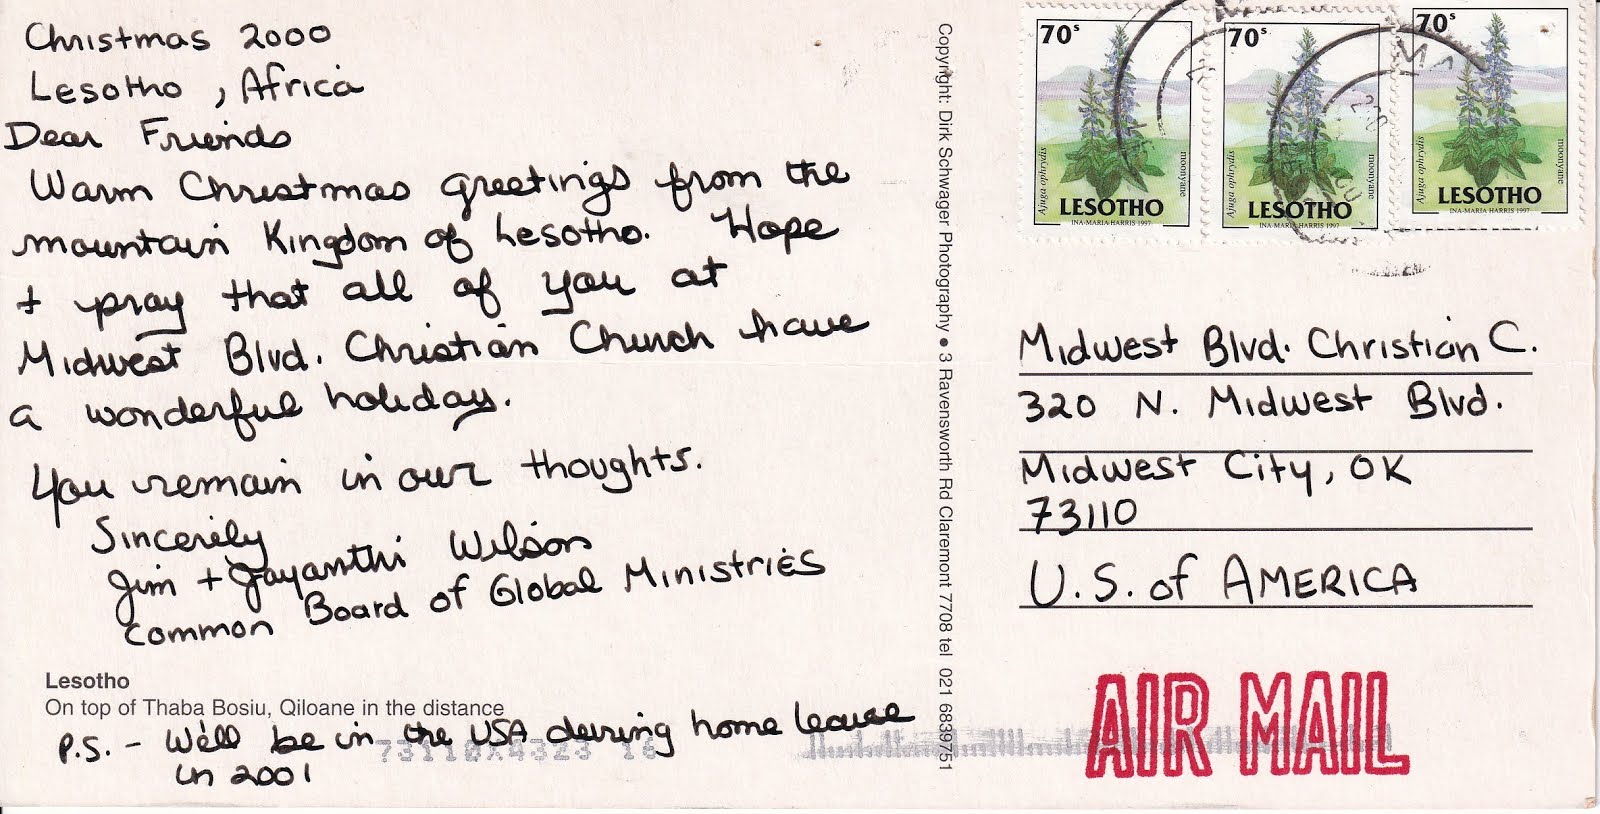 Christmas 2000
Lesotho, Africa
Dear Friends
Warm Christmas greetings from the
mountain Kingdom of Lesotho. Hope
+ pray that all of you at
Midwest Blvd. Christian Church have
a wonderful holiday.
You remain in our thoughts.
Sincerely
Jim + Jayanthi Wilson
Common Board of Global Ministries
Lesotho
On top of Thaba Bosiu, Qiloane in the distance
P.S. - We'll be in the USA during home leave
in 2001
73110X4323 16
Copyright: Dirk Schwager Photography • 3 Ravensworth Rd Claremont 7708 tel 021 6839751
70s
Ajuga ophrydis
moonyane
LESOTHO
INA-MARIA HARRIS 1997
70s
Ajuga ophrydis
moonyane
LESOTHO
INA-MARIA HARRIS 1997
70s
Ajuga ophrydis
moonyane
LESOTHO
INA-MARIA HARRIS 1997
Midwest Blvd. Christian C.
320 N. Midwest Blvd.
Midwest City, OK
73110
U.S. of AMERICA
AIR MAIL